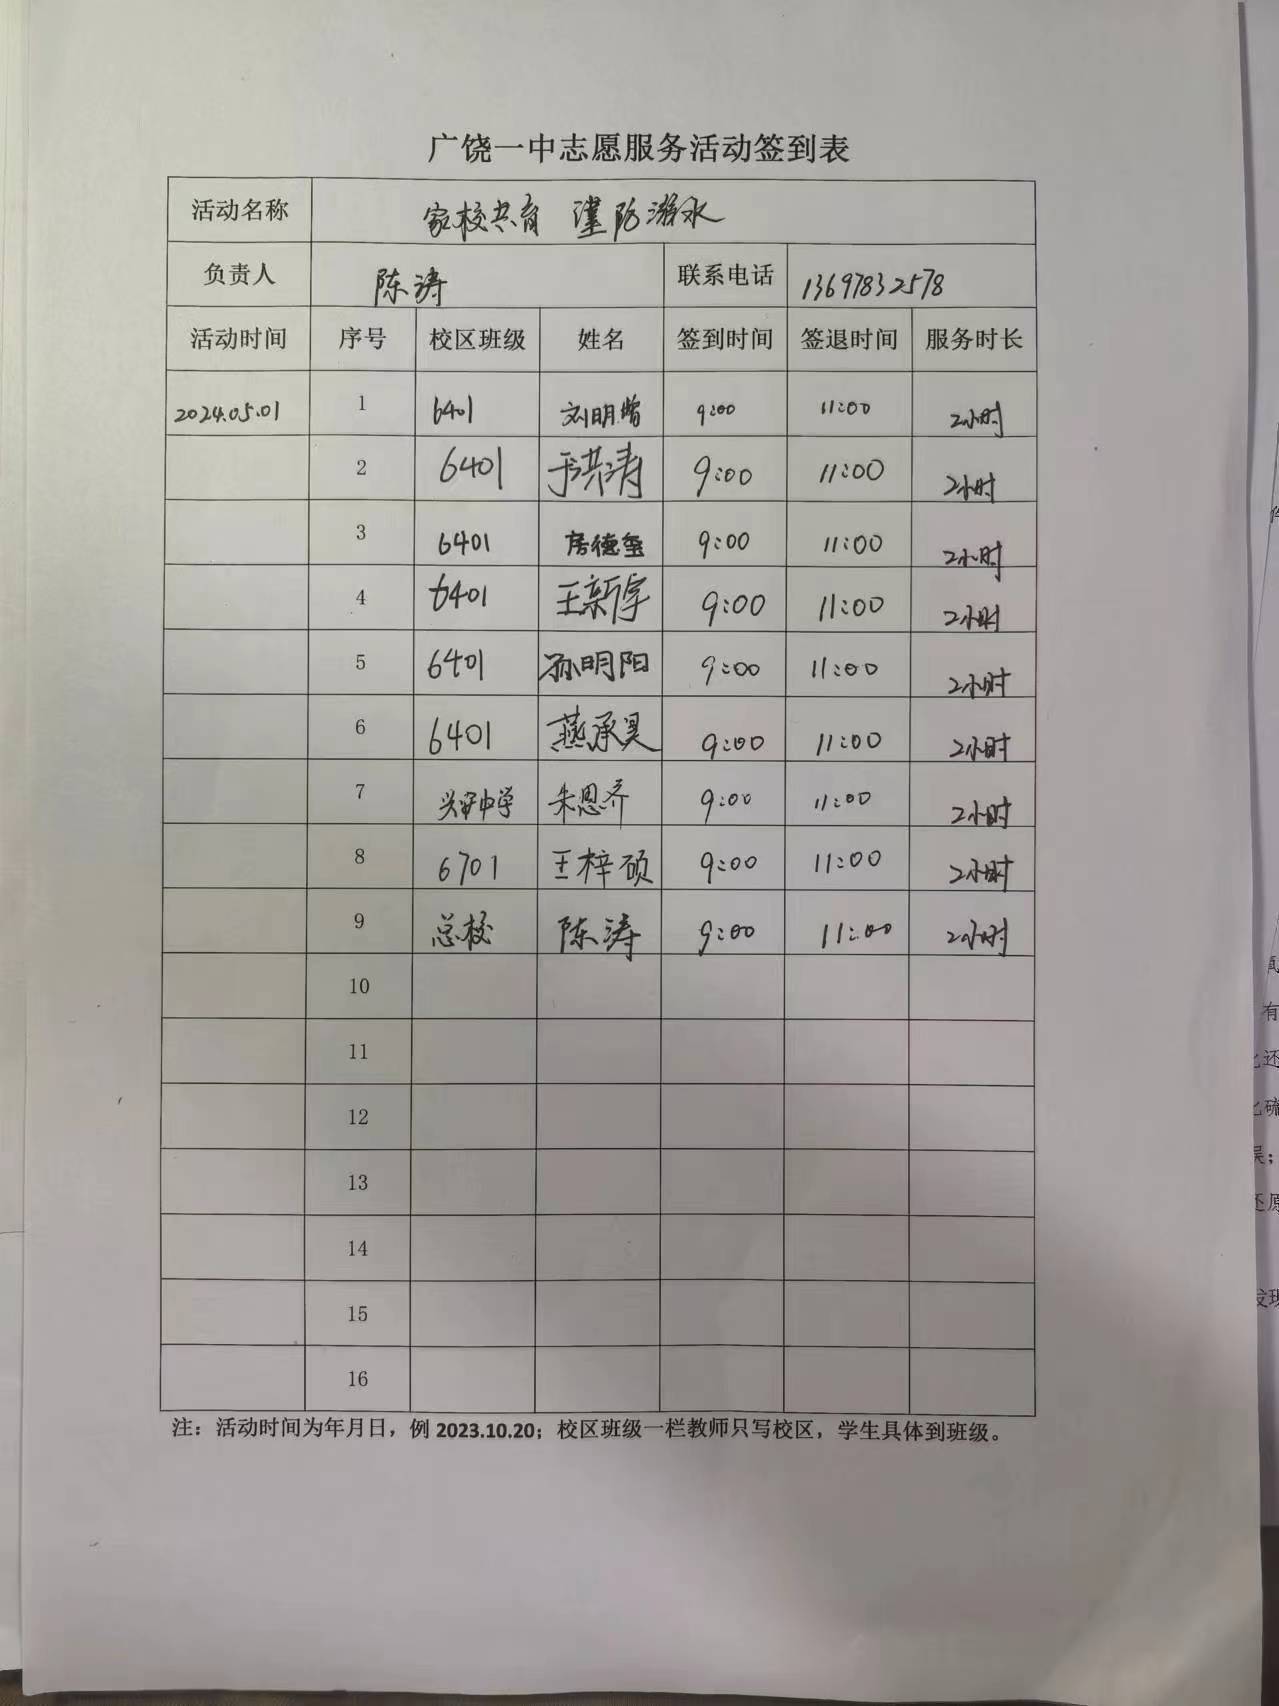 广饶一中志愿服务活动签到表
活动名称 家校共育 谨防溺水
负责人 陈涛 联系电话 13697832578
活动时间 序号 校区班级 姓名 签到时间 签退时间 服务时长
2024.05.01 1 6401 刘明 9:00 11:00 2小时
2 6401 于洪涛 9:00 11:00 2小时
3 6401 房德玺 9:00 11:00 2小时
4 6401 王新宇 9:00 11:00 2小时
5 6401 孙明阳 9:00 11:00 2小时
6 6401 燕承昊 9:00 11:00 2小时
7 兴安中学 朱恩齐 9:00 11:00 2小时
8 6701 王梓硕 9:00 11:00 2小时
9 总校 陈涛 9:00 11:00 2小时
10
11
12
13
14
15
16
注：活动时间为年月日，例 2023.10.20；校区班级一栏教师只写校区，学生具体到班级。
有
还
硫
；
还原